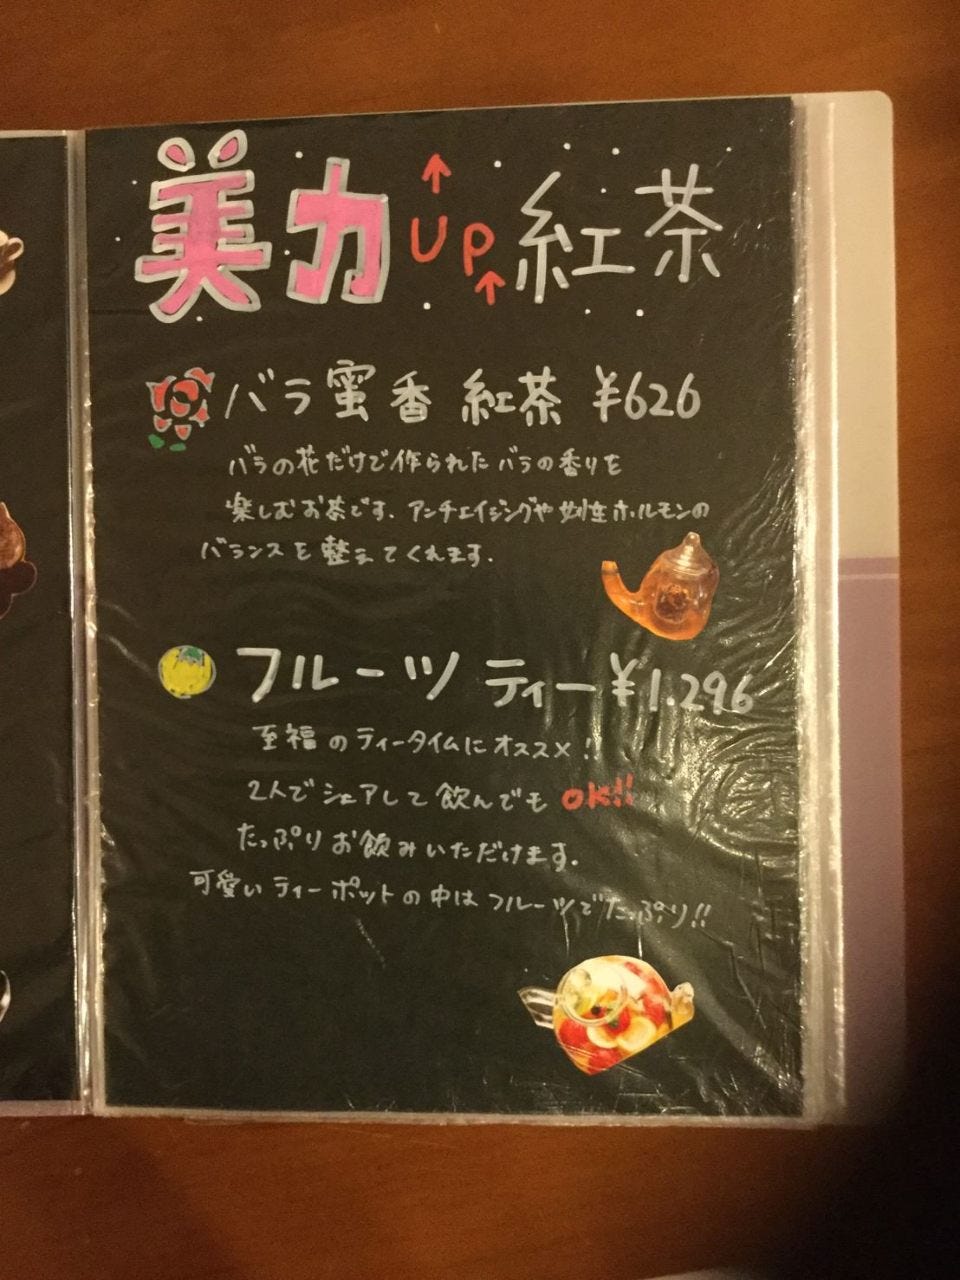 美力UP紅茶
バラ蜜香 紅茶 ¥626
バラの花だけで作られたバラの香りを
楽しむお茶です。アンチエイジングや女性ホルモンの
バランスを整えてくれます。
フルーツ ティー ¥1.296
至福のティータイムにオススメ!
2人でシェアして飲んでもOK!!
たっぷりお飲みいただけます。
可愛いティーポットの中はフルーツでたっぷり!!